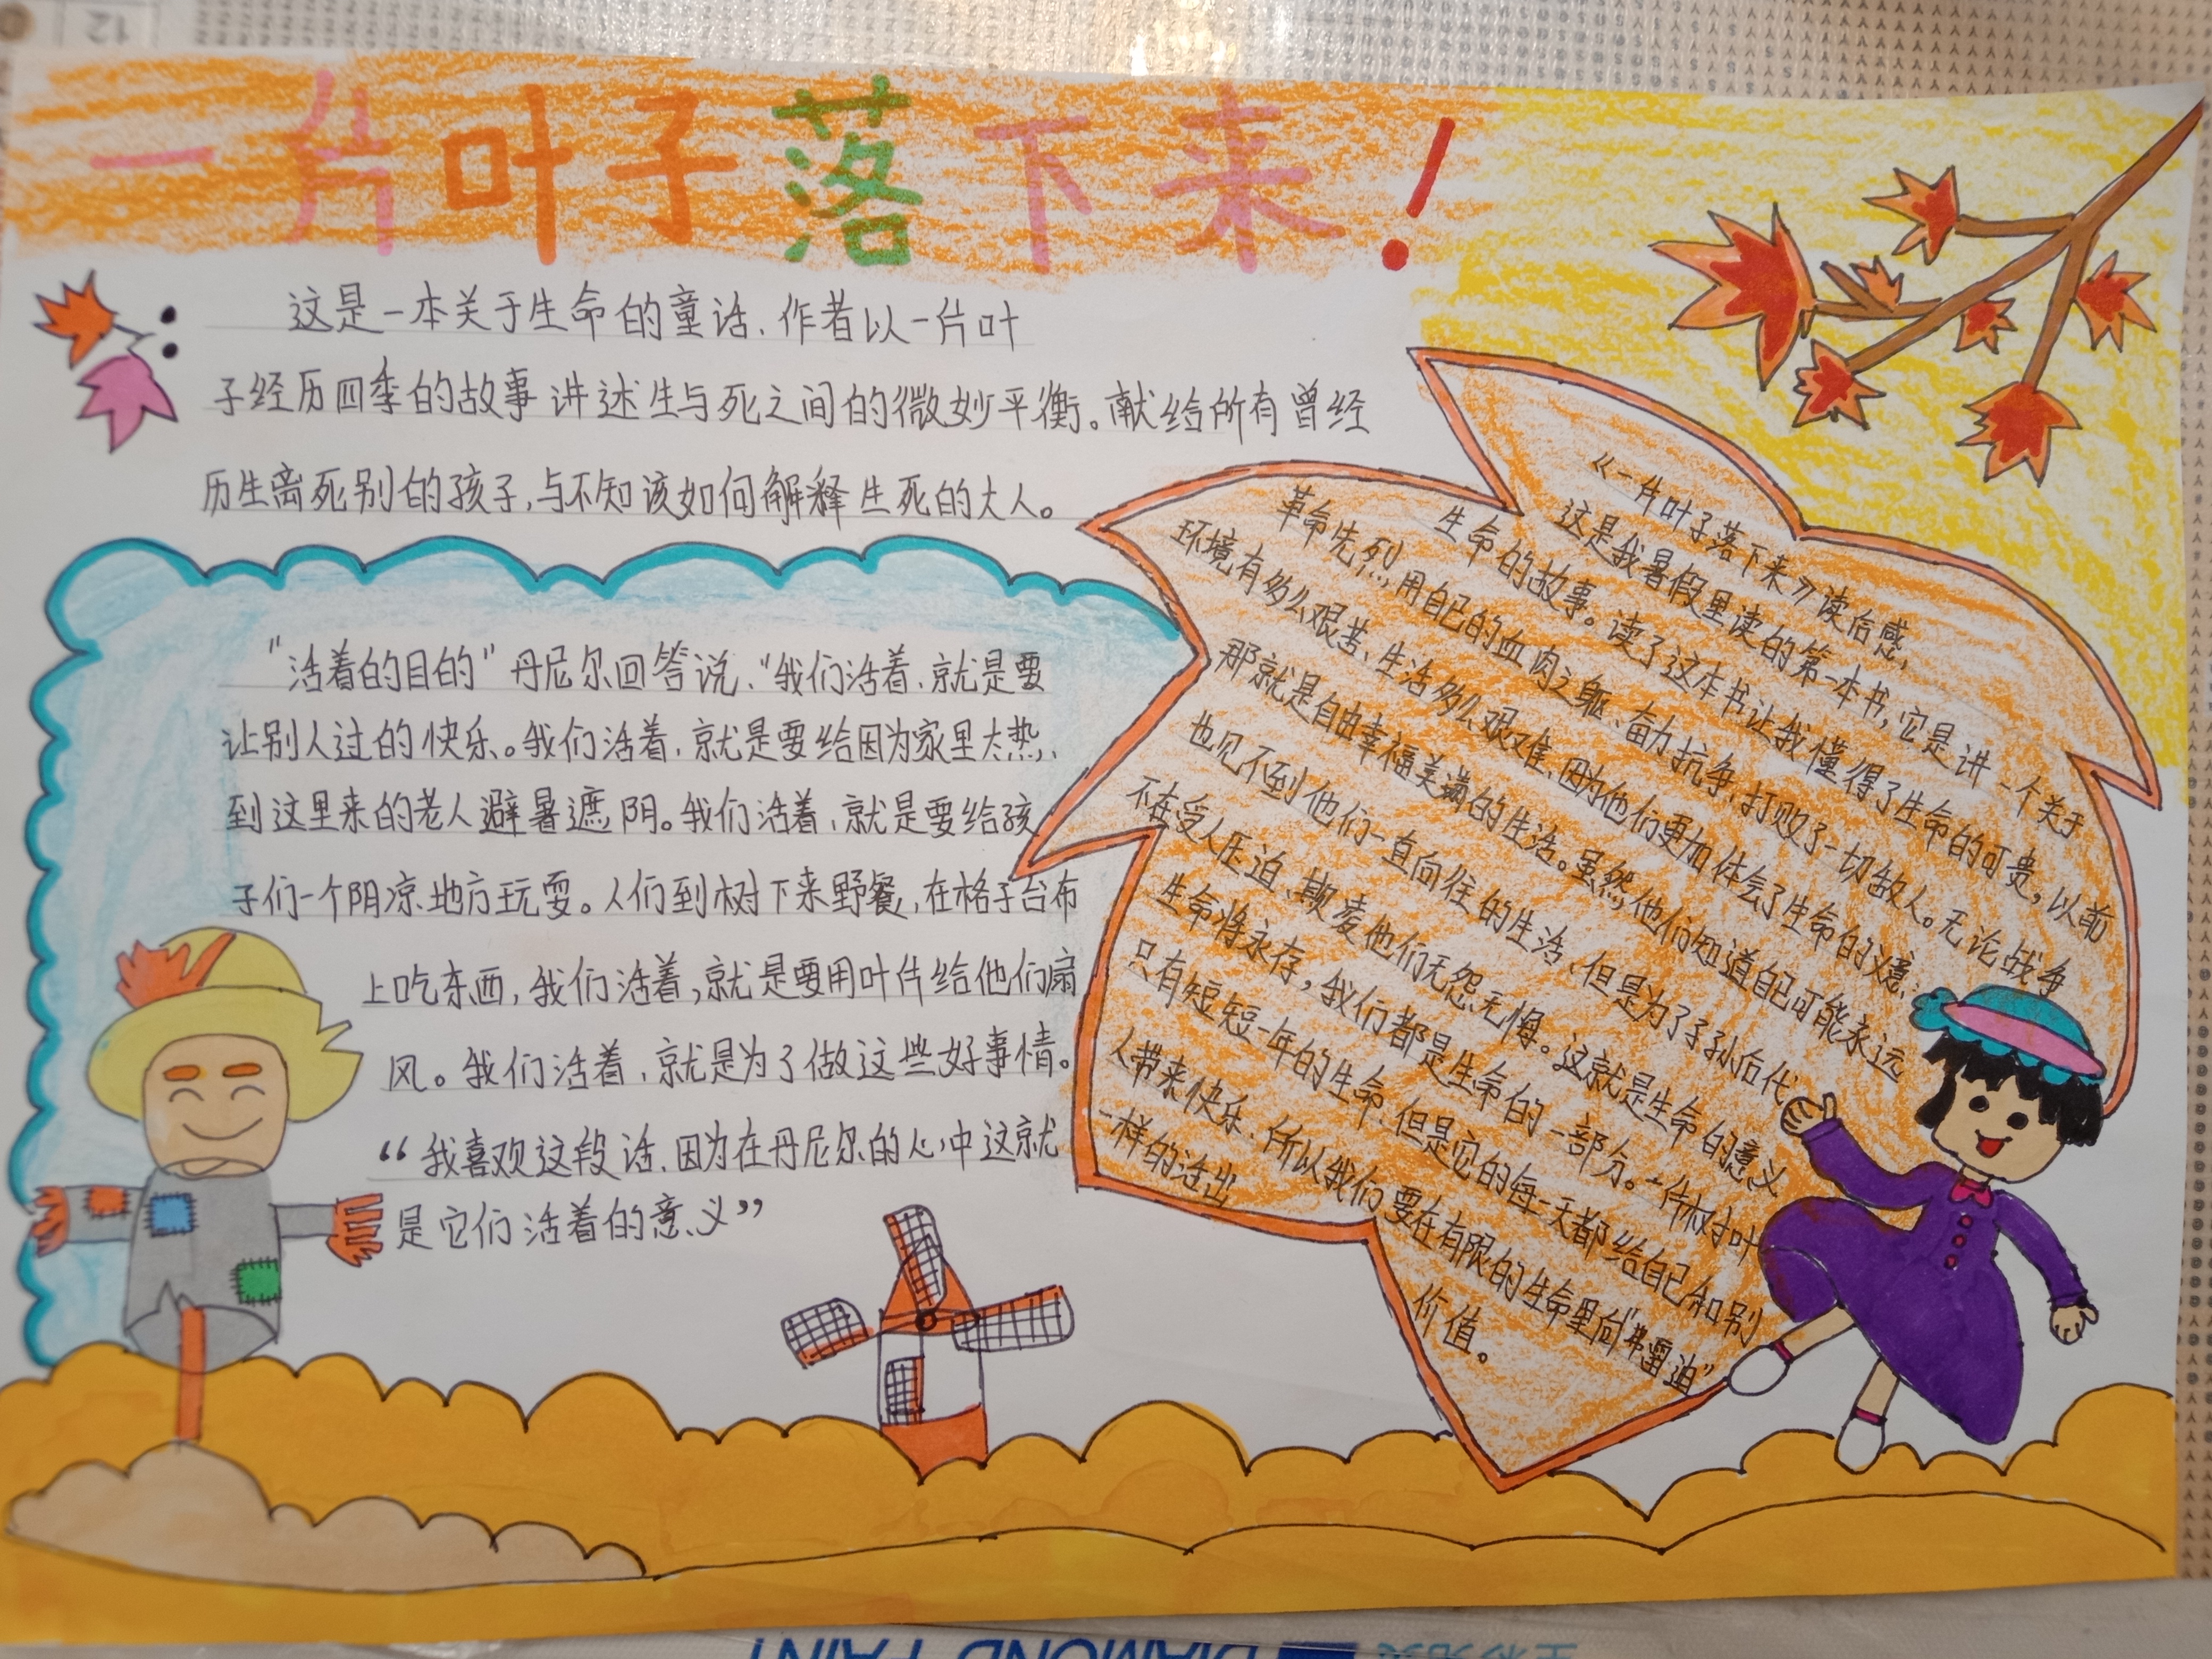 一片叶子落下来！
这是一本关于生命的童话、作者以一片叶
子经历四季的故事讲述生与死之间的微妙平衡。献给所有曾经
历生离死别的孩子,与不知该如何解释生死的大人。
"活着的目的"丹尼尔回答说、"我们活着、就是要
让别人过的快乐。我们活着、就是要给因为家里太热、
到这里来的老人避暑遮阴。我们活着、就是要给孩
子们一个阴凉地方玩耍。人们到树下来野餐,在格子台布
上吃东西,我们活着,就是要用叶片给他们扇
风。我们活着、就是为了做这些好事情。
“我喜欢这段话、因为在丹尼尔的心中这就
是它们活着的意义”
《一片叶子落下来》读后感、
这是我暑假里读的第一本书,它是讲一个关于
生命的故事。读了这本书让我懂得了生命的可贵,以前
革命先烈,用自己的血肉之躯、奋力抗争、打败了一切敌人。无论战争
环境有多么艰苦、生活多么艰难、因为他们更加体会了生命的意义:
那就是自由幸福美满的生活。虽然,他们知道自己可能永远
也见不到他们一直向往的生活、但是为了子孙后代
不在受人压迫、欺凌他们无怨无悔。这就是生命的意义
生命将永存,我们都是生命的一部分。一片树叶
只有短短一年的生命、但是它的每一天都给自己和别
人带来快乐、所以我们要在有限的生命里向"弗雷迪"
一样的活出
价值。
12
DIAMOND PAINT